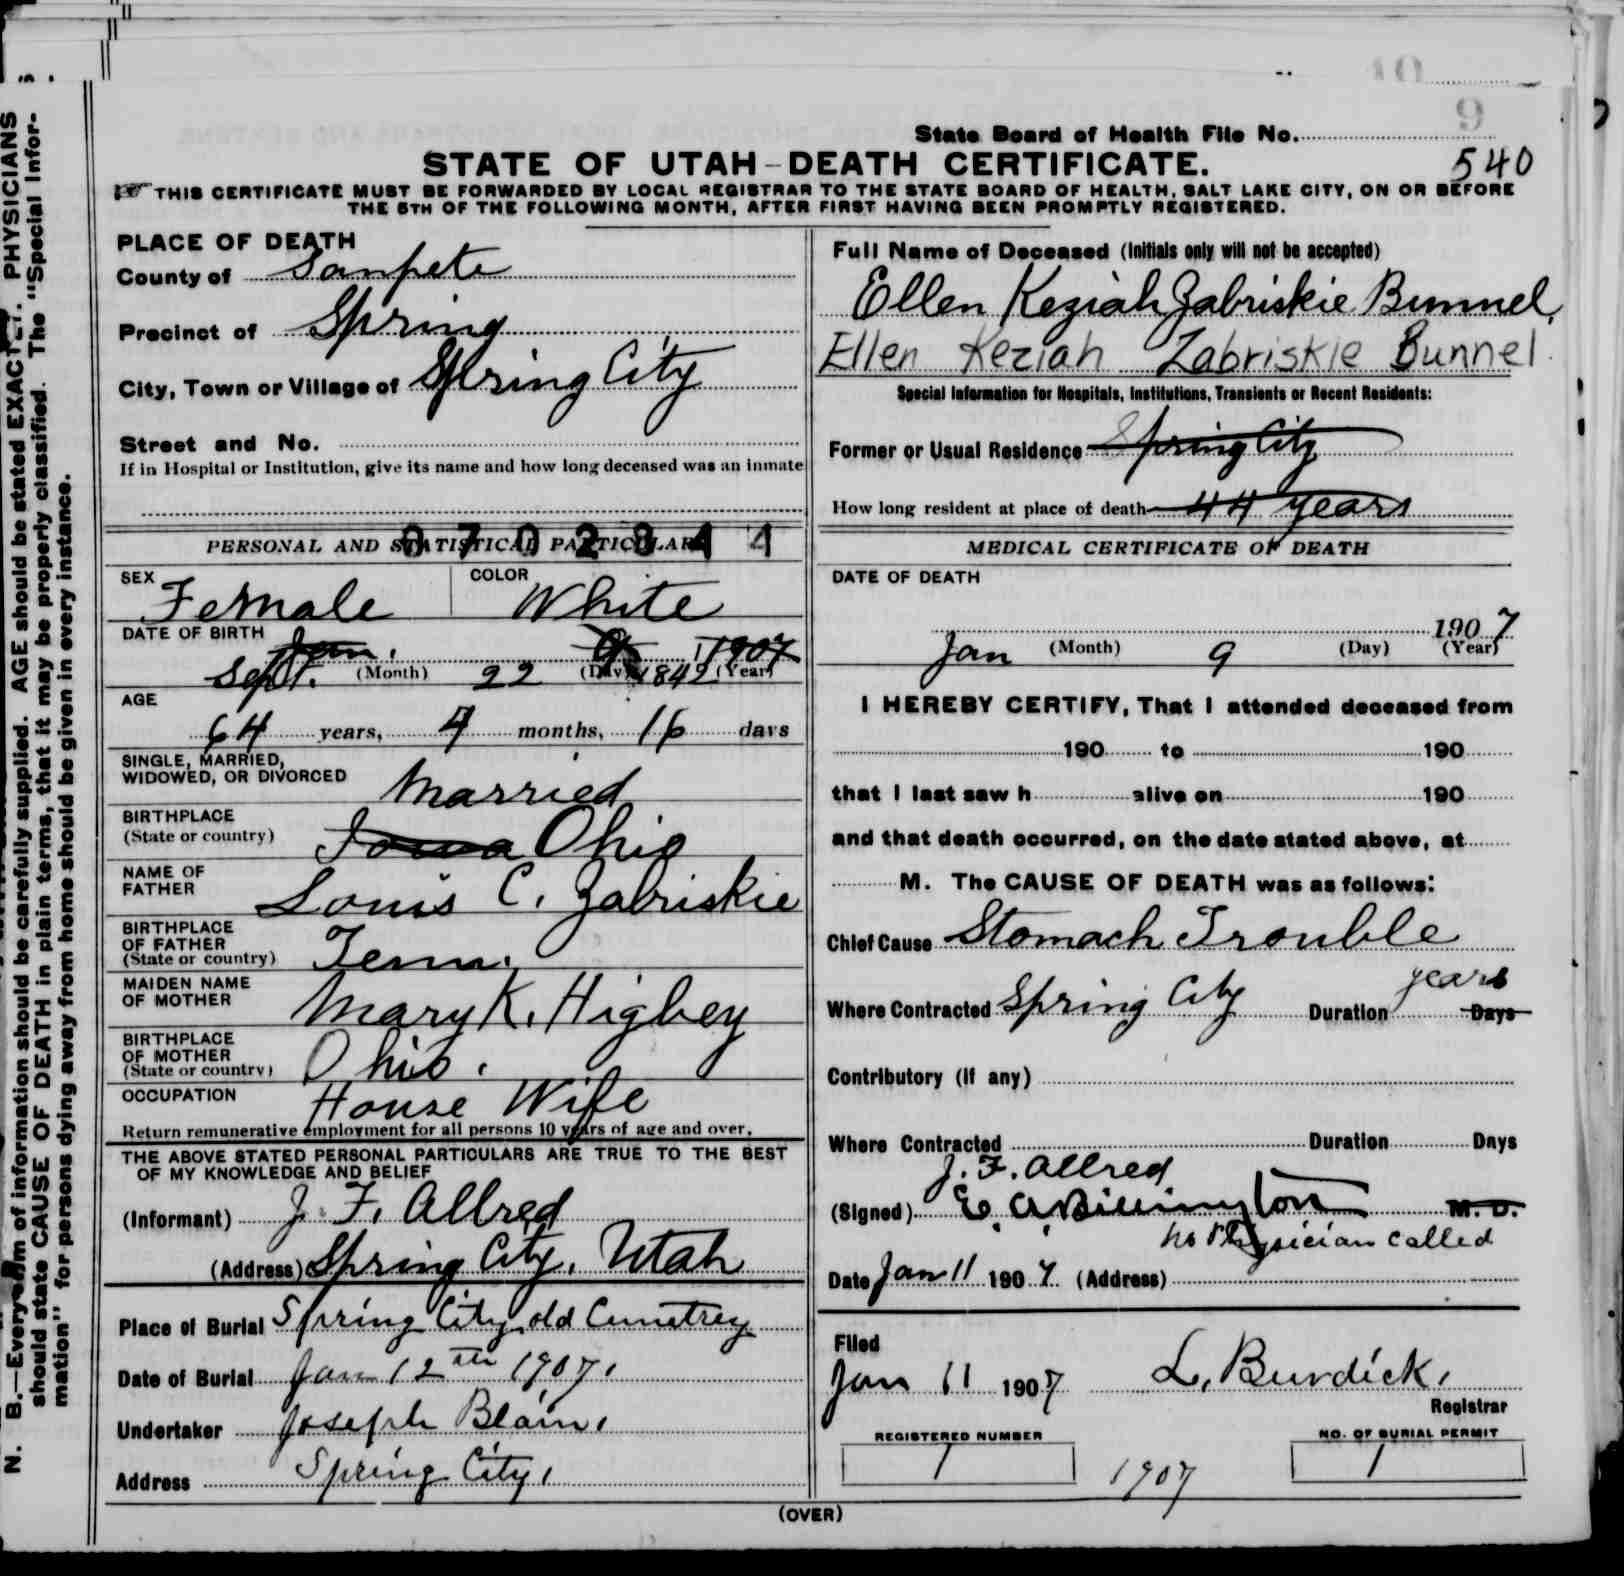 State Board of Health File No.
9
540
STATE OF UTAH-DEATH CERTIFICATE.
THIS CERTIFICATE MUST BE FORWARDED BY LOCAL REGISTRAR TO THE STATE BOARD OF HEALTH, SALT LAKE CITY, ON OR BEFORE
THE 5TH OF THE FOLLOWING MONTH, AFTER FIRST HAVING BEEN PROMPTLY REGISTERED.
PLACE OF DEATH
County of Sanpete
Precinct of Spring
City, Town or Village of Spring City
Street and No.
If in Hospital or Institution, give its name and how long deceased was an inmate
0702844
PERSONAL AND STATISTICAL PARTICULARS
SEX Female COLOR White
DATE OF BIRTH
Jan. 9 1907
Sept. (Month) 22 (Day) 1842 (Year)
AGE
64 years, 4 months, 16 days
SINGLE, MARRIED,
WIDOWED, OR DIVORCED Married
BIRTHPLACE
(State or country) Iowa Ohio
NAME OF
FATHER Louis C. Zabriskie
BIRTHPLACE
OF FATHER
(State or country) Tenn.
MAIDEN NAME
OF MOTHER Mary K. Higbey
BIRTHPLACE
OF MOTHER
(State or country) Ohio.
OCCUPATION House Wife
Return remunerative employment for all persons 10 years of age and over.
THE ABOVE STATED PERSONAL PARTICULARS ARE TRUE TO THE BEST
OF MY KNOWLEDGE AND BELIEF
(Informant) J. F. Allred
(Address) Spring City, Utah
Place of Burial Spring City old Cemetrey
Date of Burial Jan 12th 1907.
Undertaker Joseph Blain.
Address Spring City,
Full Name of Deceased (Initials only will not be accepted)
Ellen Keziah Zabriskie Bunnel,
Ellen Keziah Zabriskie Bunnel.
Special Information for Hospitals, Institutions, Transients or Recent Residents:
Former or Usual Residence Spring City
How long resident at place of death 44 years
MEDICAL CERTIFICATE OF DEATH
DATE OF DEATH
1907
Jan (Month) 9 (Day) (Year)
I HEREBY CERTIFY, That I attended deceased from
190 to 190
that I last saw h alive on 190
and that death occurred, on the date stated above, at
M. The CAUSE OF DEATH was as follows:
Chief Cause Stomach Trouble
years
Where Contracted Spring City Duration Days
Contributory (if any)
Where Contracted Duration Days
J. F. Allred
(Signed) E. A. Billington M. D.
no Physician called
Date Jan 11 1907 (Address)
Filed
Jan 11 1907 L. Burdick,
Registrar
REGISTERED NUMBER NO. OF BURIAL PERMIT
1 1907 1
(OVER)
N. B.—Every item of information should be carefully supplied. AGE should be stated EXACTLY. PHYSICIANS
should state CAUSE OF DEATH in plain terms, that it may be properly classified. The "Special Infor-
mation" for persons dying away from home should be given in every instance.